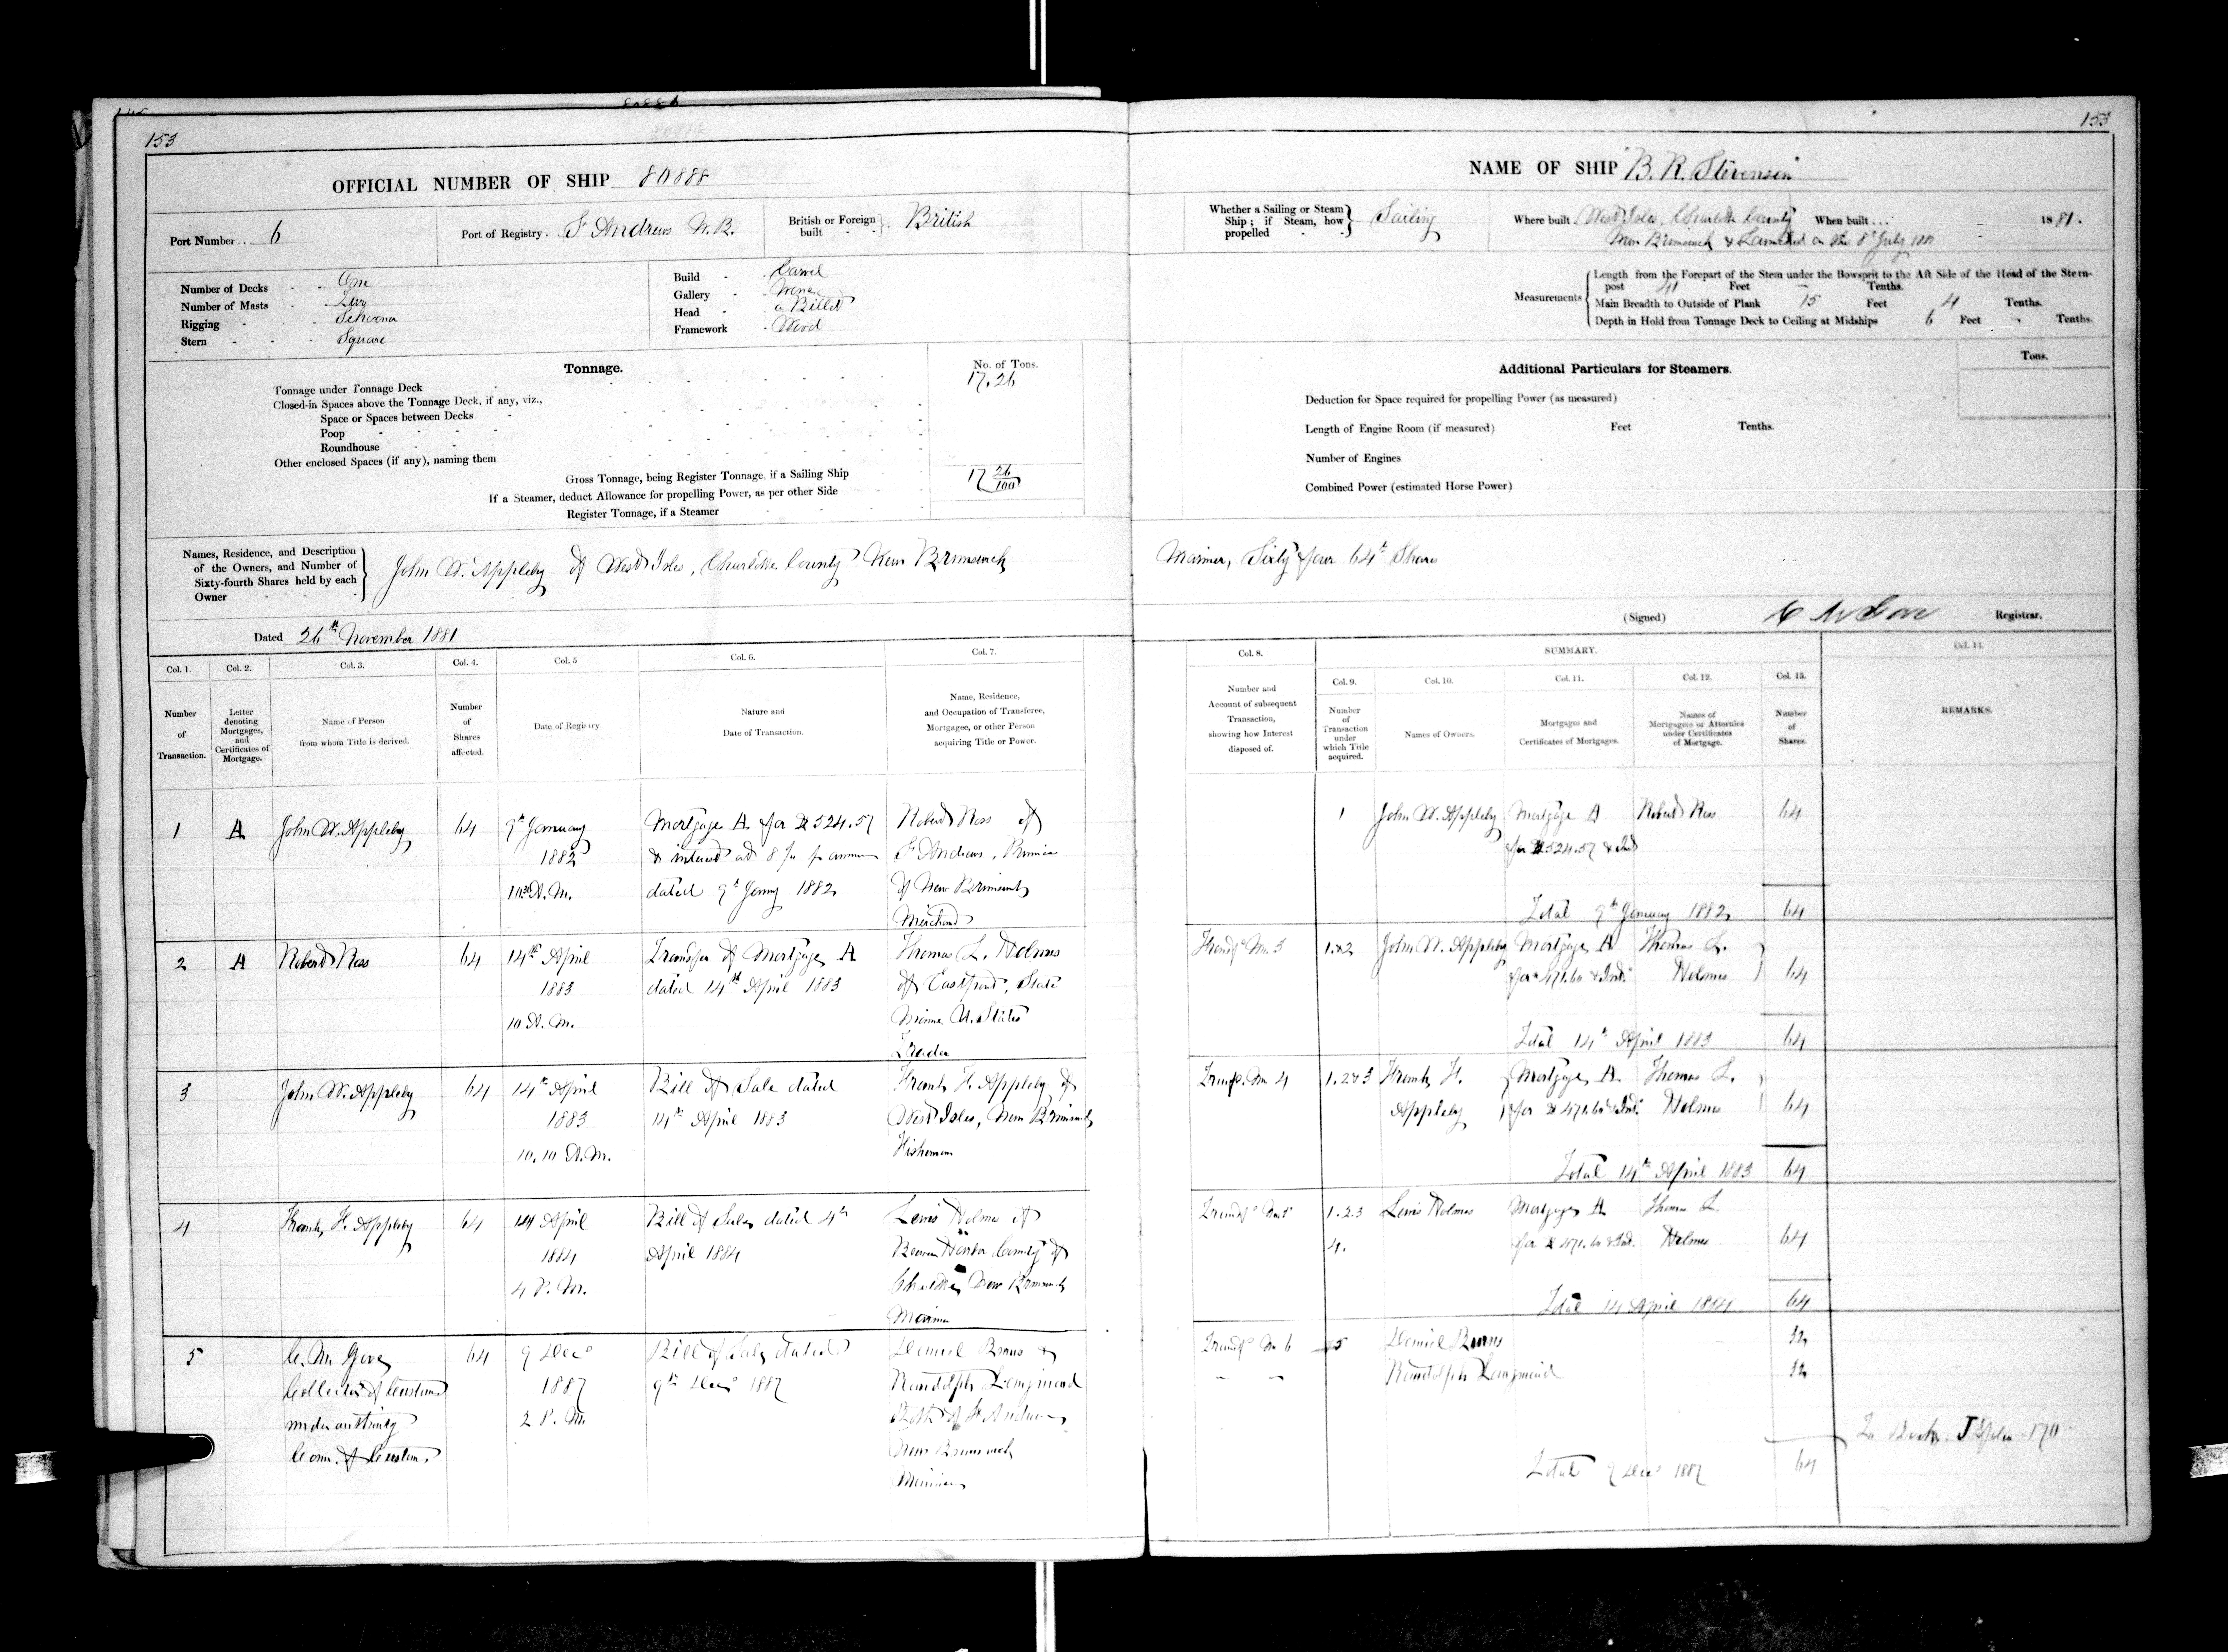 153
OFFICIAL NUMBER OF SHIP 80888
Port Number 6
Port of Registry St Andrews N.B.
British or Foreign built British
Number of Decks One
Number of Masts Two
Rigging Schooner
Stern Square
Build Carvel
Gallery None
Head a Billet
Framework Wood
Tonnage.
No. of Tons.
Tonnage under Tonnage Deck 17.26
Closed-in Spaces above the Tonnage Deck, if any, viz.,
Space or Spaces between Decks
Poop
Roundhouse
Other enclosed Spaces (if any), naming them
Gross Tonnage, being Register Tonnage, if a Sailing Ship 17 26/100
If a Steamer, deduct Allowance for propelling Power, as per other Side
Register Tonnage, if a Steamer
Names, Residence, and Description of the Owners, and Number of Sixty-fourth Shares held by each Owner
John W. Appleby of West Isles, Charlotte County New Brunswick
Dated 26th November 1881
Col. 1. Col. 2. Col. 3. Col. 4. Col. 5 Col. 6. Col. 7.
Number of Transaction.
Letter denoting Mortgages, and Certificates of Mortgage.
Name of Person from whom Title is derived.
Number of Shares affected.
Date of Registry
Nature and Date of Transaction.
Name, Residence, and Occupation of Transferee, Mortgagee, or other Person acquiring Title or Power.
1 A John W. Appleby 64 9th January Mortgage A for $524.57 Robert Ross of
1882 & interest at 8 p annum St Andrews, Province
10.30 A.M. dated 9th Janry 1882 of New Brunswick
Merchant
2 A Robert Ross 64 14th April Transfer of Mortgage A Thomas L. Holmes
1883 dated 14th April 1883 of Eastport, State
10 A.M. Maine U. States
Trader
3 John W. Appleby 64 14th April Bill of Sale dated Frank H. Appleby of
1883 14th April 1883 West Isles, New Brunswick
10.10 A.M. Fisherman
4 Frank H. Appleby 64 14 April Bill of Sale dated 4th Lewis Holmes of
1884 April 1884 Beaver Harbor County of
4 P.M. Charlotte New Brunswick
Mariner
5 C. M. Gove 64 9 Decr Bill of Sale dated Daniel Burns &
Collector of Customs 1887 9th Decr 1887 Randolph
under authority 2 P.M. Both of St Andrews
Com. of Customs New Brunswick
Mariners
153
NAME OF SHIP "B. R. Stevenson"
Whether a Sailing or Steam Ship; if Steam, how propelled Sailing
Where built West Isles, Charlotte County When built 1881.
New Brunswick & Launched on the 8th July 1881
Measurements
Length from the Forepart of the Stem under the Bowsprit to the Aft Side of the Head of the Stern-
post 41 Feet - Tenths.
Main Breadth to Outside of Plank 15 Feet 4 Tenths.
Depth in Hold from Tonnage Deck to Ceiling at Midships 6 Feet - Tenths.
Additional Particulars for Steamers.
Tons.
Deduction for Space required for propelling Power (as measured)
Length of Engine Room (if measured) Feet Tenths.
Number of Engines
Combined Power (estimated Horse Power)
Mariner, Sixty four 64th Shares
(Signed) C M Gove Registrar.
Col. 8. SUMMARY. Col. 14.
Col. 9. Col. 10. Col. 11. Col. 12. Col. 13.
Number and Account of subsequent Transaction, showing how Interest disposed of.
Number of Transaction under which Title acquired.
Names of Owners.
Mortgages and Certificates of Mortgages.
Names of Mortgagees or Attornies under Certificates of Mortgage.
Number of Shares.
REMARKS.
1 John W. Appleby Mortgage A Robert Ross 64
for $524.57 & Int
Total 9th January 1882 64
Transfr No. 3 1.&2 John W. Appleby Mortgage A Thomas L.
for $471.60 & Int. Holmes 64
Total 14th April 1883 64
Transfr. No 4 1.2&3 Frank H. Mortgage A. Thomas L.
Appleby for $471.60 & Int. Holmes 64
Total 14th April 1883 64
Transfr No 5 1.2.3 Lewis Holmes Mortgage A Thomas L.
4. for $471.60 & Int. Holmes 64
Total 14 April 1884 64
Transfr No 6 5 Daniel Burns 32
Randolph 32
Total 9 Decr 1887 64
To Book J folio 170